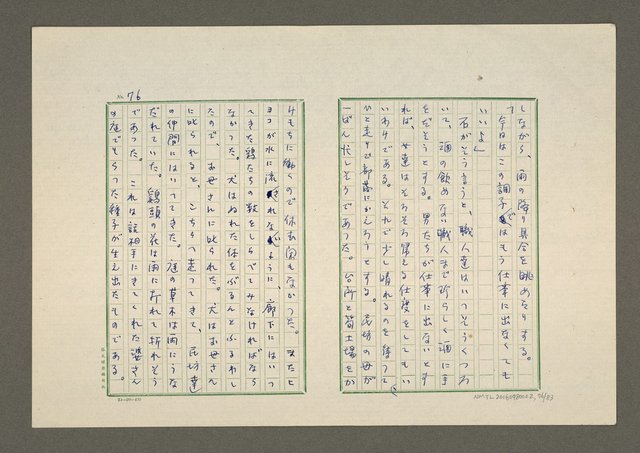 しながら、雨の降り具合を眺めたりする。
「今日はこの調子ではもう仕事に出なくても
いいよ」
石がそう言うと、職人達はいっそうくつろ
いで、酒の飲めない職人まで珍らしく酒に手
をだそうとする。男たちが仕事に出ないとす
れば、女達はそろそろ帰える仕度をしてもい
いわけである。それで少し晴れるのを待って
ひと走りで部落にかえろうとする。民坊の母が
一ばん忙しそうであった。台所と箱土場をか
No. 76
けもちに働くので休む間もなかった。またヒ
ヨコが水に流されないように、廊下にはいっ
てきた鶏たちの数をしらべてみなければなら
なかった。犬はぬれた体をぶるんとふるわし
たので、お母さんに叱られた。犬はお母さん
に叱られると、こちらへ走ってきて、民坊達
の仲間にはいってきた。庭の草木は雨にうな
だれていた。鶏頭の花は雨に打れて折れそう
であった。これは話相手にきてくれた婆さん
の庭でもらった種子が生え出たものである。
NMTL 20060980002, 76/83